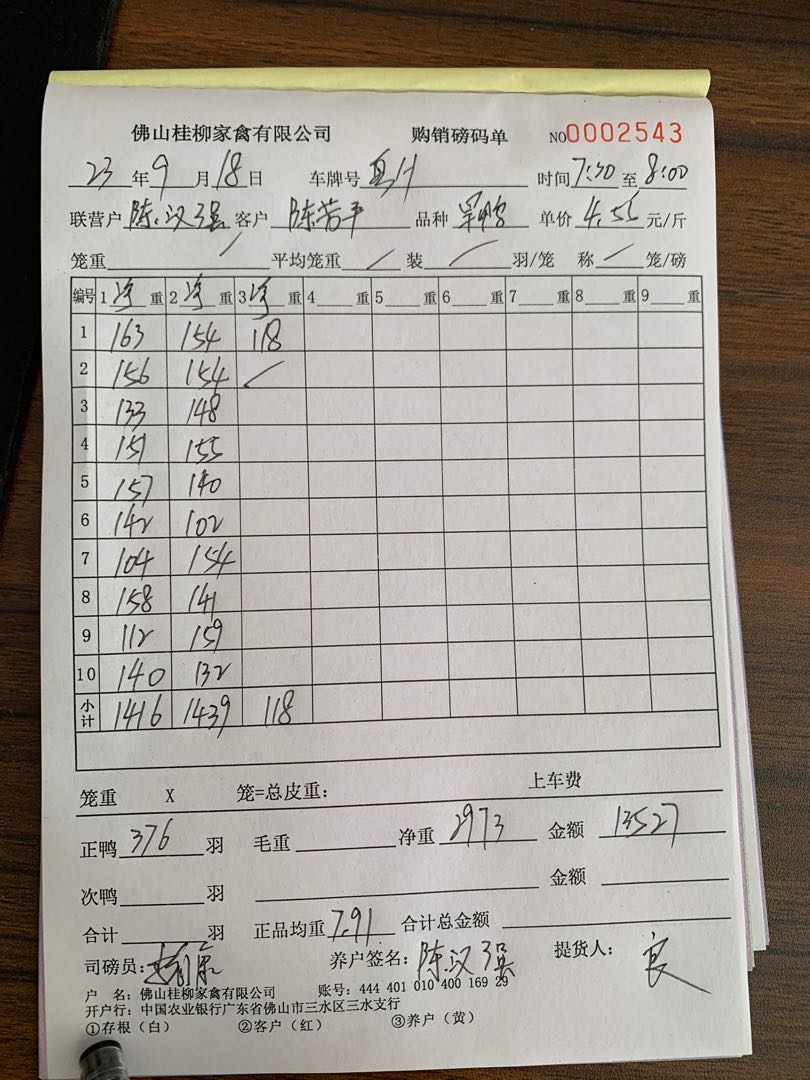 佛山桂柳家禽有限公司 购销磅码单 NO0002543
23年9月18日 车牌号 时间7:30至8:00
联营户陈汉强 客户陈芳平 品种 单价4.55元/斤
笼重 / 平均笼重 / 装 / 羽/笼 称 / 笼/磅
编号 1净重 2净重 3净重 4重 5重 6重 7重 8重 9重
1 163 154 118
2 156 154 /
3 133 148
4 151 155
5 157 140
6 142 102
7 104 154
8 158 141
9 112 159
10 140 132
小计 1416 1439 118
笼重 X 笼=总皮重： 上车费
正鸭376羽 毛重 净重2973 金额13527
次鸭 羽 金额
合计 羽 正品均重7.91 合计总金额
司磅员： 养户签名：陈汉强 提货人：良
户 名：佛山桂柳家禽有限公司 账号：444 401 010 400 169 29
开户行：中国农业银行广东省佛山市三水区三水支行
①存根（白） ②客户（红） ③养户（黄）